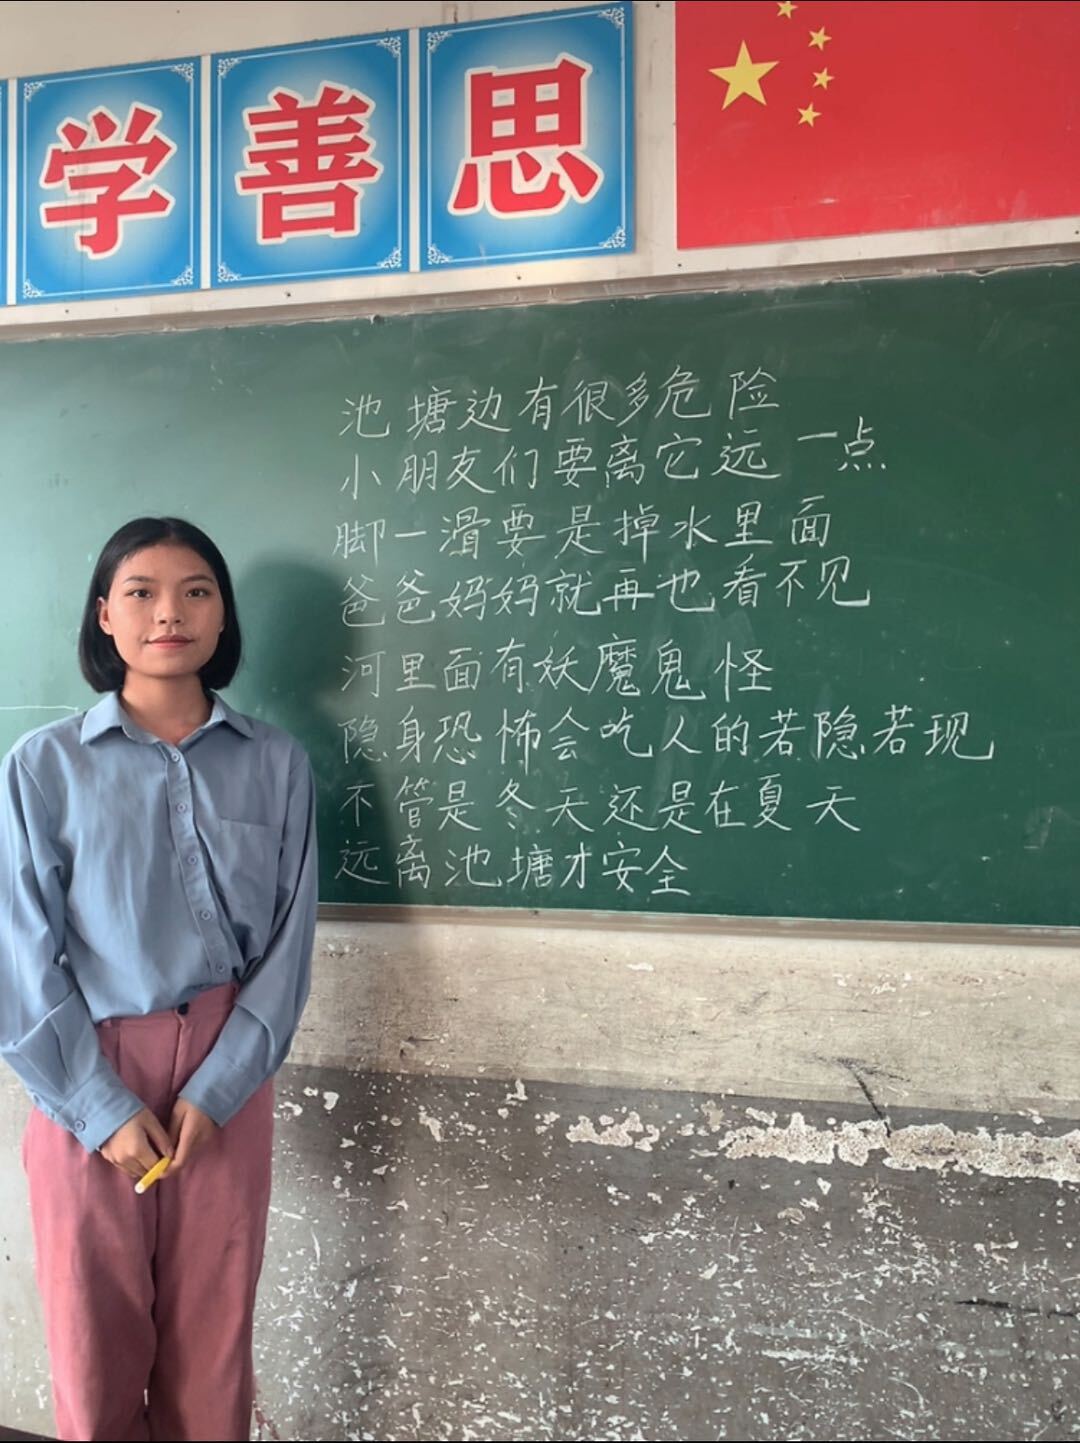 学善思
池塘边有很多危险
小朋友们要离它远一点
脚一滑要是掉水里面
爸爸妈妈就再也看不见
河里面有妖魔鬼怪
隐身恐怖会吃人的若隐若现
不管是冬天还是在夏天
远离池塘才安全